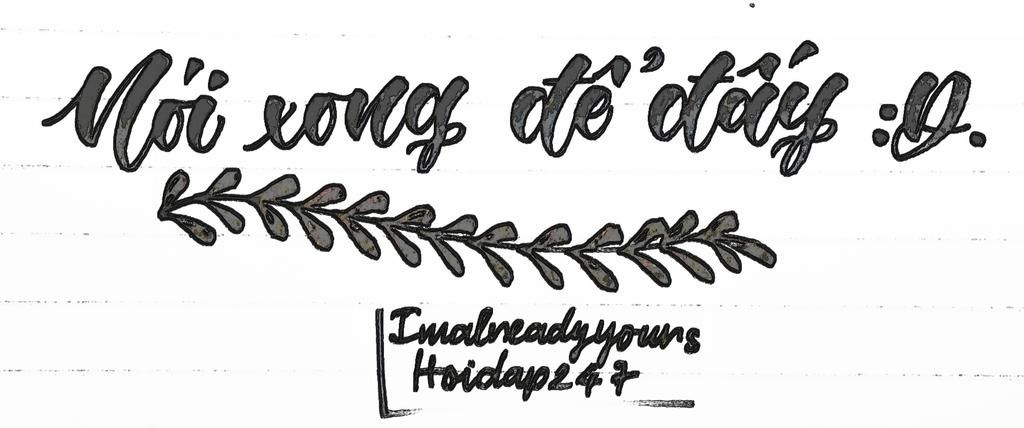 Nói xong để đấy :D.
Imalreadyyours
Hoidap247